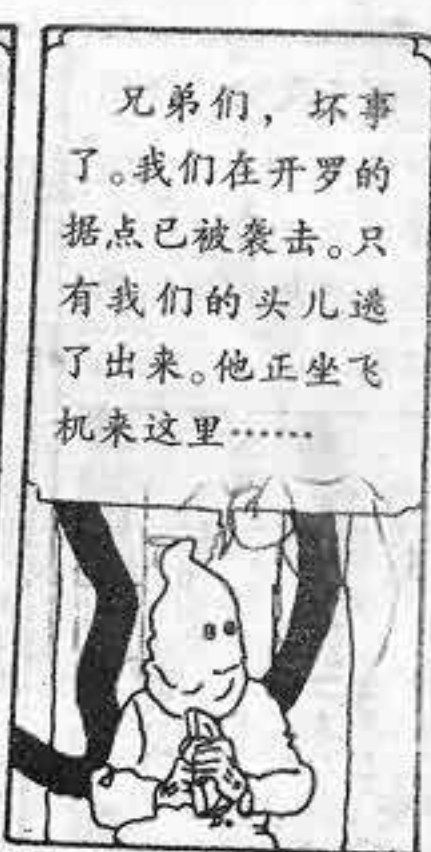 兄弟们，坏事
了。我们在开罗的
据点已被袭击。只
有我们的头儿逃
了出来。他正坐飞
机来这里……